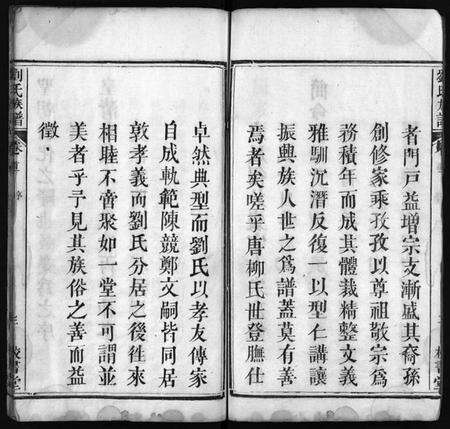 者門戶益增宗支漸盛其裔孫
創修家乘孜孜以尊祖敬宗爲
務積年而成其體裁精整文義
雅馴沉潛反復一以型仁講讓
振興族人世之為譜蓋莫有善
焉者矣嗟乎唐柳氏世登膴仕
卓然典型而劉氏以孝友傳家
自成軌範陳競鄭文嗣皆同居
敦孝義而劉氏分居之後徃來
相睦不啻聚如一堂不可謂並
美者乎予見其族俗之善而益
徵
劉氏族譜
卷首
序
三
校書堂